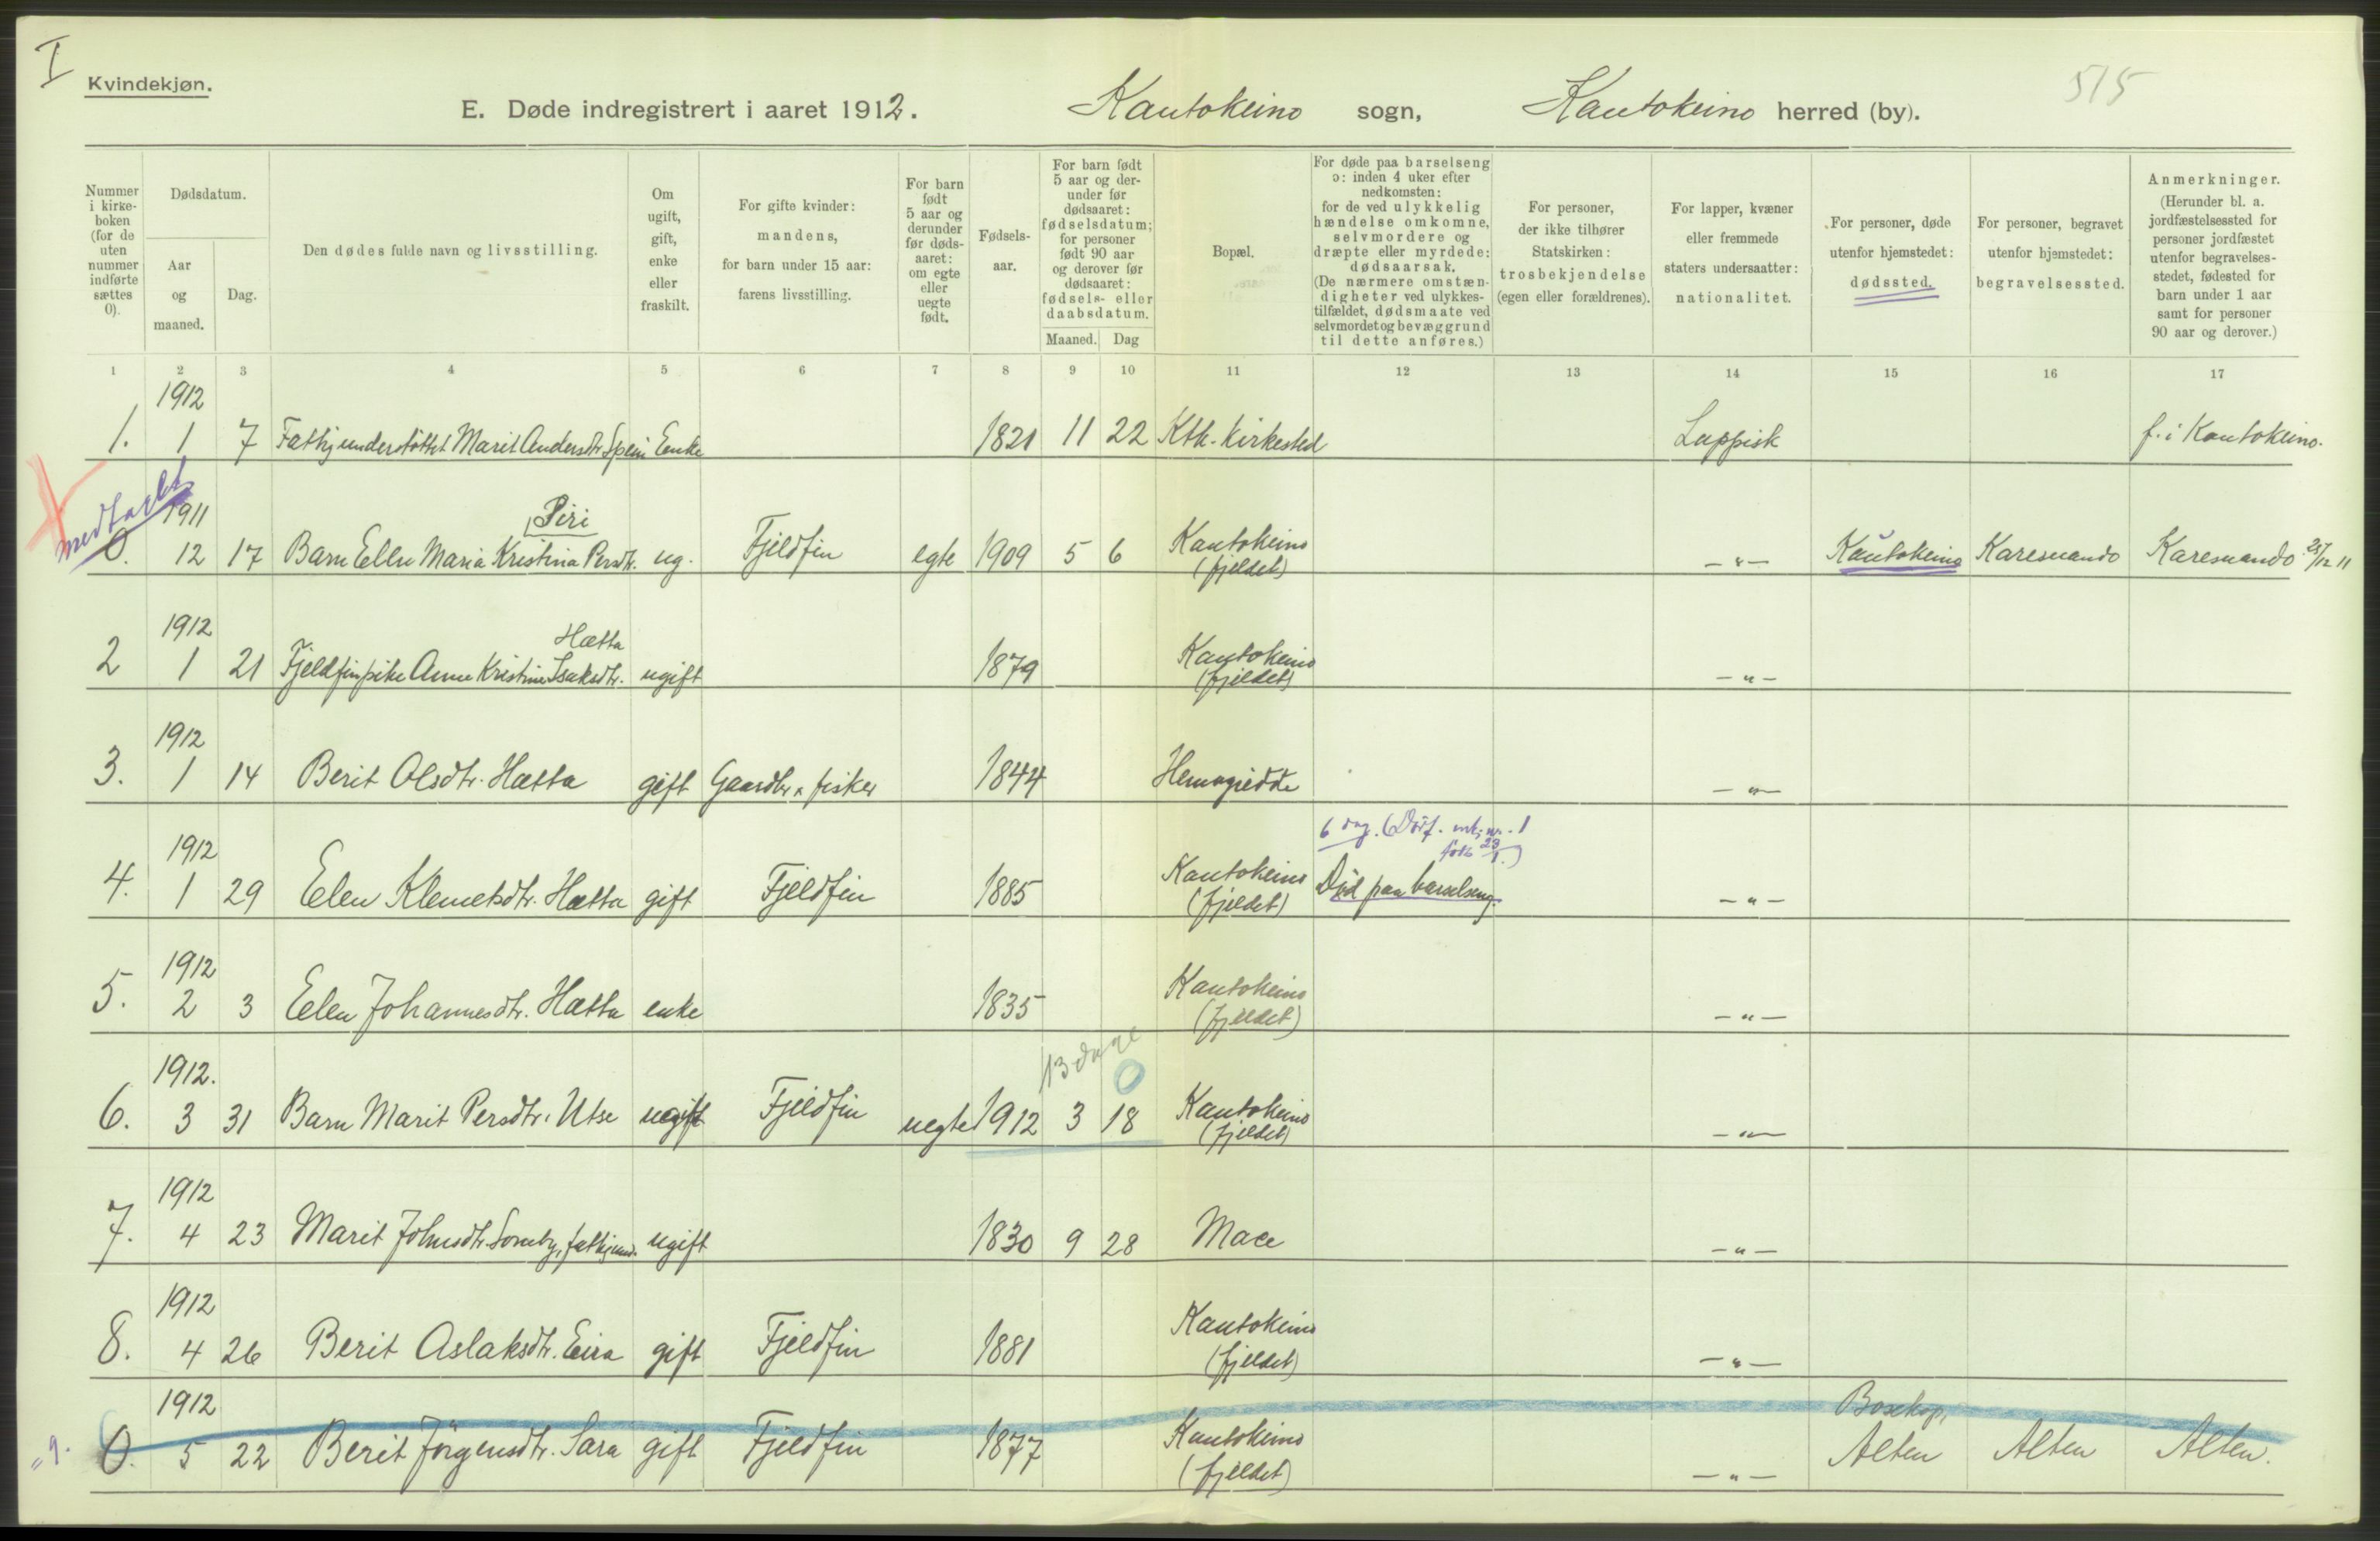 I
Kvindekjøn.
515
E. Døde indregistrert i aaret 1912. Kautokeino sogn, Kautokeino herred (by).
Nummer i kirkeboken (for de uten nummer indførte sættes 0).
Dødsdatum.
Aar og maaned.
Dag.
Den dødes fulde navn og livsstilling.
Om ugift, gift, enke eller fraskilt.
For gifte kvinder: mandens, for barn under 15 aar: farens livsstilling.
For barn født 5 aar og derunder før dødsaaret: om egte eller uegte født.
Fødselsaar.
For barn født 5 aar og derunder før dødsaaret: fødselsdatum; for personer født 90 aar og derover før dødsaaret: fødsels- eller daabsdatum.
Maaned. Dag
Bopæl.
For døde paa barselseng ɔ: inden 4 uker efter nedkomsten: for de ved ulykkelig hændelse omkomne, selvmordere og dræpte eller myrdede: dødsaarsak. (De nærmere omstændigheter ved ulykkestilfældet, dødsmaate ved selvmordet og bevæggrund til dette anføres.)
For personer, der ikke tilhører Statskirken: trosbekjendelse (egen eller forældrenes).
For lapper, kvæner eller fremmede staters undersaatter: nationalitet.
For personer, døde utenfor hjemstedet: dødssted.
For personer, begravet utenfor hjemstedet: begravelsessted.
Anmerkninger. (Herunder bl. a. jordfæstelsessted for personer jordfæstet utenfor begravelsesstedet, fødested for barn under 1 aar samt for personer 90 aar og derover.)
1 2 3 4 5 6 7 8 9 10 11 12 13 14 15 16 17
1912
1. 1 7 Fattigunderstøttet Marit Andersdtr. Spein Enke 1821 11 22 Ktk. Kirkested Lappisk f. i Kautokeino.
medtaget
1911 Piri
0. 12 17 Barn Ellen Maria Kristina Persdtr. ug. Fjeldfin egte 1909 5 6 Kautokeino (fjeldet) - " - Kautokeino Karesuando Karesuando 25/12 11
1912 Hætta
2 1 21 Fjeldfinpike Anne Kristine Isaksdtr. ugift 1879 Kautokeino (fjeldet) - " -
1912
3. 1 14 Berit Olsdtr. Hætta gift Gaardbr. & fisker 1844 - " -
6 dag. født 23/1.)
1912
4. 1 29 Ellen Klemetsdtr. Hætta gift Fjeldfin 1885 Kautokeino (fjeldet) Død paa barselseng. - " -
1912
5. 2 3 Ellen Johannesdtr. Hætta enke 1835 Kautokeino (fjeldet) - " -
13 dage
0
1912.
6. 3 31 Barn Marit Persdtr. Utse ugift Fjeldfin uegte 1912 3 18 Kautokeino (fjeldet) - " -
1912
7. 4 23 Marit Johnsdtr. Somby, fattigund. ugift 1830 9 28 Mace - " -
1912
8. 4 26 Berit Aslaksdtr. Eira gift Fjeldfin 1881 Kautokeino (fjeldet) - " -
1912 Bosekop,
" 9. 0. 5 22 Berit Jörgensdtr. Sara gift Fjeldfin 1877 Kautokeino (fjeldet) - " - Alten Alten Alten.